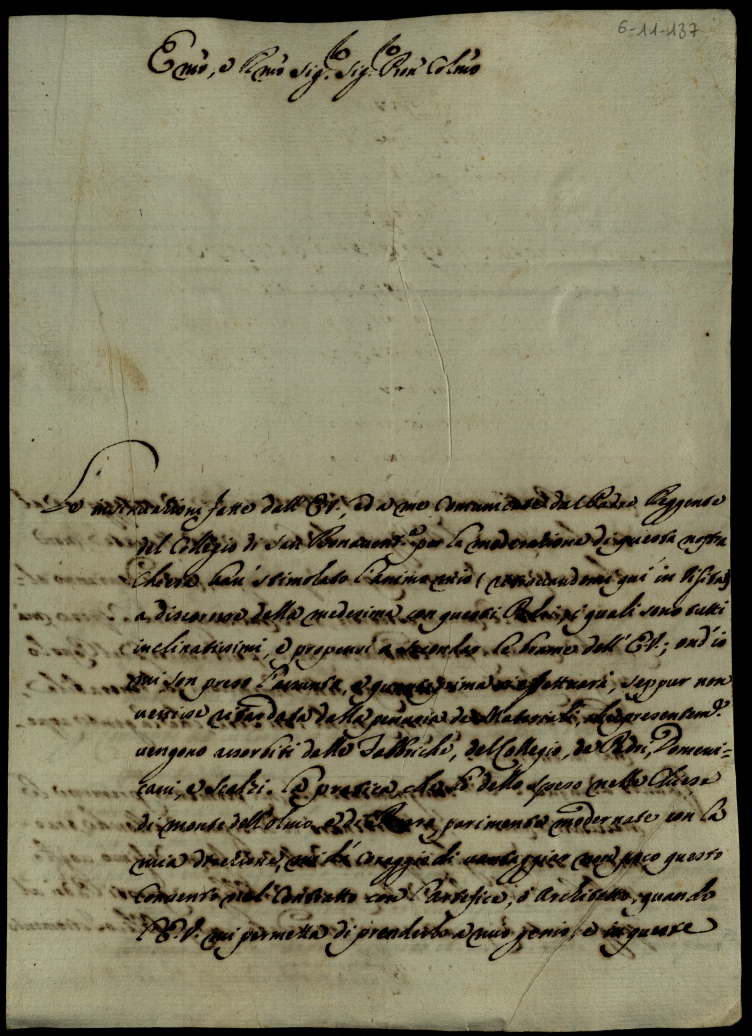 6-11-137
Emo, e Rmo Sig.re Sig.re Pron Colmo
Le insinuazioni fatte dall'EV., ed a me comunicate dal Padre Reggente
del Collegio di San Bonavent.a per la moderazione di questa nostra
Chiesa, han' stimolato l'animo mio (ritrovandomi qui in Visita)
a discorrer della medesima con questi Religi quali sono tutti
inclinatissimi, e propensi a secondar le brame dell'EV.; ond'io
mi son preso l'assunto, e quanto prima si effettuarà, seppur non
venisse ritardata dalla penuria de Materiali, che presentem.te
vengono assorbiti dalle Fabbriche, del Collegio, de Padri, Domeni-
cani, e Scalzi. La pratica, che hò delle spese nelle Chiese
di monte dell'olmo, e di parimente modernate con la
mia direzione, mi dà coraggio di vantaggiar non poco questo
Convento nel Contratto con l'Artefice, ò Architetto, quando
l'E.V. mi permetta di prenderlo a mio genio, e in questa